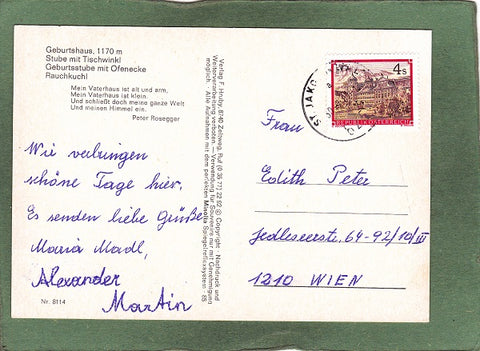 Geburtshaus, 1170 m
Stube mit Tischwinkl
Geburtsstube mit Ofenecke
Rauchkuchl
Mein Vaterhaus ist alt und arm,
Mein Vaterhaus ist klein.
Und schließt doch meine ganze Welt
Und meinen Himmel ein.
Peter Rosegger
Wir verbringen
schöne Tage hier,
Es senden liebe Grüße
Maria Madl,
Alexander
Martin
Nr. 8114
Verlag F. Hruby, 8740 Zeltweg, Ruf (0 35 77) 22 92 © Copyright - Nachdruck und
Weiterverarbeitung verboten. — Verwendung für Souvenirs nur mit Genehmigung
möglich. Alle Aufnahmen mit dem perfekten Minolta Spiegelreflexsystem - 85
4 S
REPUBLIK ÖSTERREICH
ST. JAKOB
Frau
Edith Peter
Jedleseerstr. 64-92/10/III
1210 WIEN